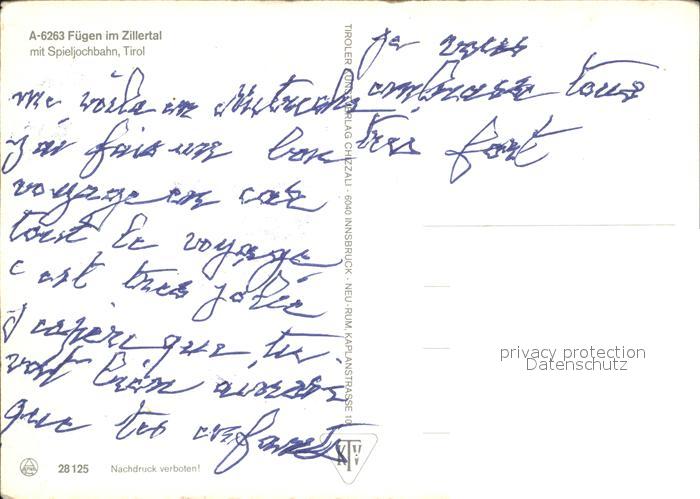 A-6263 Fügen im Zillertal
mit Spieljochbahn, Tirol
me voila en Autriche
j'ai fais un bon
voyage en car
tout le voyage
c est tres jolie
j espere que tu
vat bien
que tes enfants
je vous
embrasse tous
tres fort
TIROLER KUNSTVERLAG CHIZZALI · 6040 INNSBRUCK · NEU-RUM, KAPLANSTRASSE 10
privacy protection
Datenschutz
28125 Nachdruck verboten!
KTV